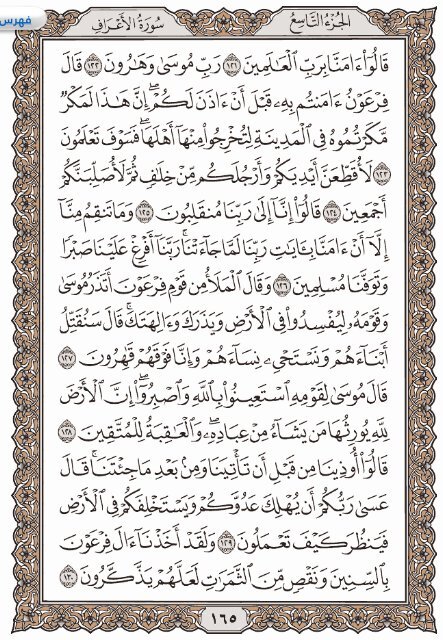 فهرس
سُورَةُ الأَعْرَافِ الجُزْءُ التَّاسِعُ
قَالُوٓاْ ءَامَنَّا بِرَبِّ ٱلْعَٰلَمِينَ ١٢١ رَبِّ مُوسَىٰ وَهَٰرُونَ ١٢٢ قَالَ
فِرْعَوْنُ ءَامَنتُم بِهِۦ قَبْلَ أَنْ ءَاذَنَ لَكُمْۖ إِنَّ هَٰذَا لَمَكْرٌ
مَّكَرْتُمُوهُ فِى ٱلْمَدِينَةِ لِتُخْرِجُواْ مِنْهَآ أَهْلَهَاۖ فَسَوْفَ تَعْلَمُونَ
١٢٣ لَأُقَطِّعَنَّ أَيْدِيَكُمْ وَأَرْجُلَكُم مِّنْ خِلَٰفٍ ثُمَّ لَأُصَلِّبَنَّكُمْ
أَجْمَعِينَ ١٢٤ قَالُوٓاْ إِنَّآ إِلَىٰ رَبِّنَا مُنقَلِبُونَ ١٢٥ وَمَا تَنقِمُ مِنَّآ
إِلَّآ أَنْ ءَامَنَّا بِـَٔايَٰتِ رَبِّنَا لَمَّا جَآءَتْنَاۚ رَبَّنَآ أَفْرِغْ عَلَيْنَا صَبْرًا
وَتَوَفَّنَا مُسْلِمِينَ ١٢٦ وَقَالَ ٱلْمَلَأُ مِن قَوْمِ فِرْعَوْنَ أَتَذَرُ مُوسَىٰ
وَقَوْمَهُۥ لِيُفْسِدُواْ فِى ٱلْأَرْضِ وَيَذَرَكَ وَءَالِهَتَكَۚ قَالَ سَنُقَتِّلُ
أَبْنَآءَهُمْ وَنَسْتَحْىِۦ نِسَآءَهُمْ وَإِنَّا فَوْقَهُمْ قَٰهِرُونَ ١٢٧
قَالَ مُوسَىٰ لِقَوْمِهِ ٱسْتَعِينُواْ بِٱللَّهِ وَٱصْبِرُوٓاْۖ إِنَّ ٱلْأَرْضَ
لِلَّهِ يُورِثُهَا مَن يَشَآءُ مِنْ عِبَادِهِۦۖ وَٱلْعَٰقِبَةُ لِلْمُتَّقِينَ ١٢٨
قَالُوٓاْ أُوذِينَا مِن قَبْلِ أَن تَأْتِيَنَا وَمِنۢ بَعْدِ مَا جِئْتَنَاۚ قَالَ
عَسَىٰ رَبُّكُمْ أَن يُهْلِكَ عَدُوَّكُمْ وَيَسْتَخْلِفَكُمْ فِى ٱلْأَرْضِ
فَيَنظُرَ كَيْفَ تَعْمَلُونَ ١٢٩ وَلَقَدْ أَخَذْنَآ ءَالَ فِرْعَوْنَ
بِٱلسِّنِينَ وَنَقْصٍ مِّنَ ٱلثَّمَرَٰتِ لَعَلَّهُمْ يَذَّكَّرُونَ ١٣٠
١٦٥